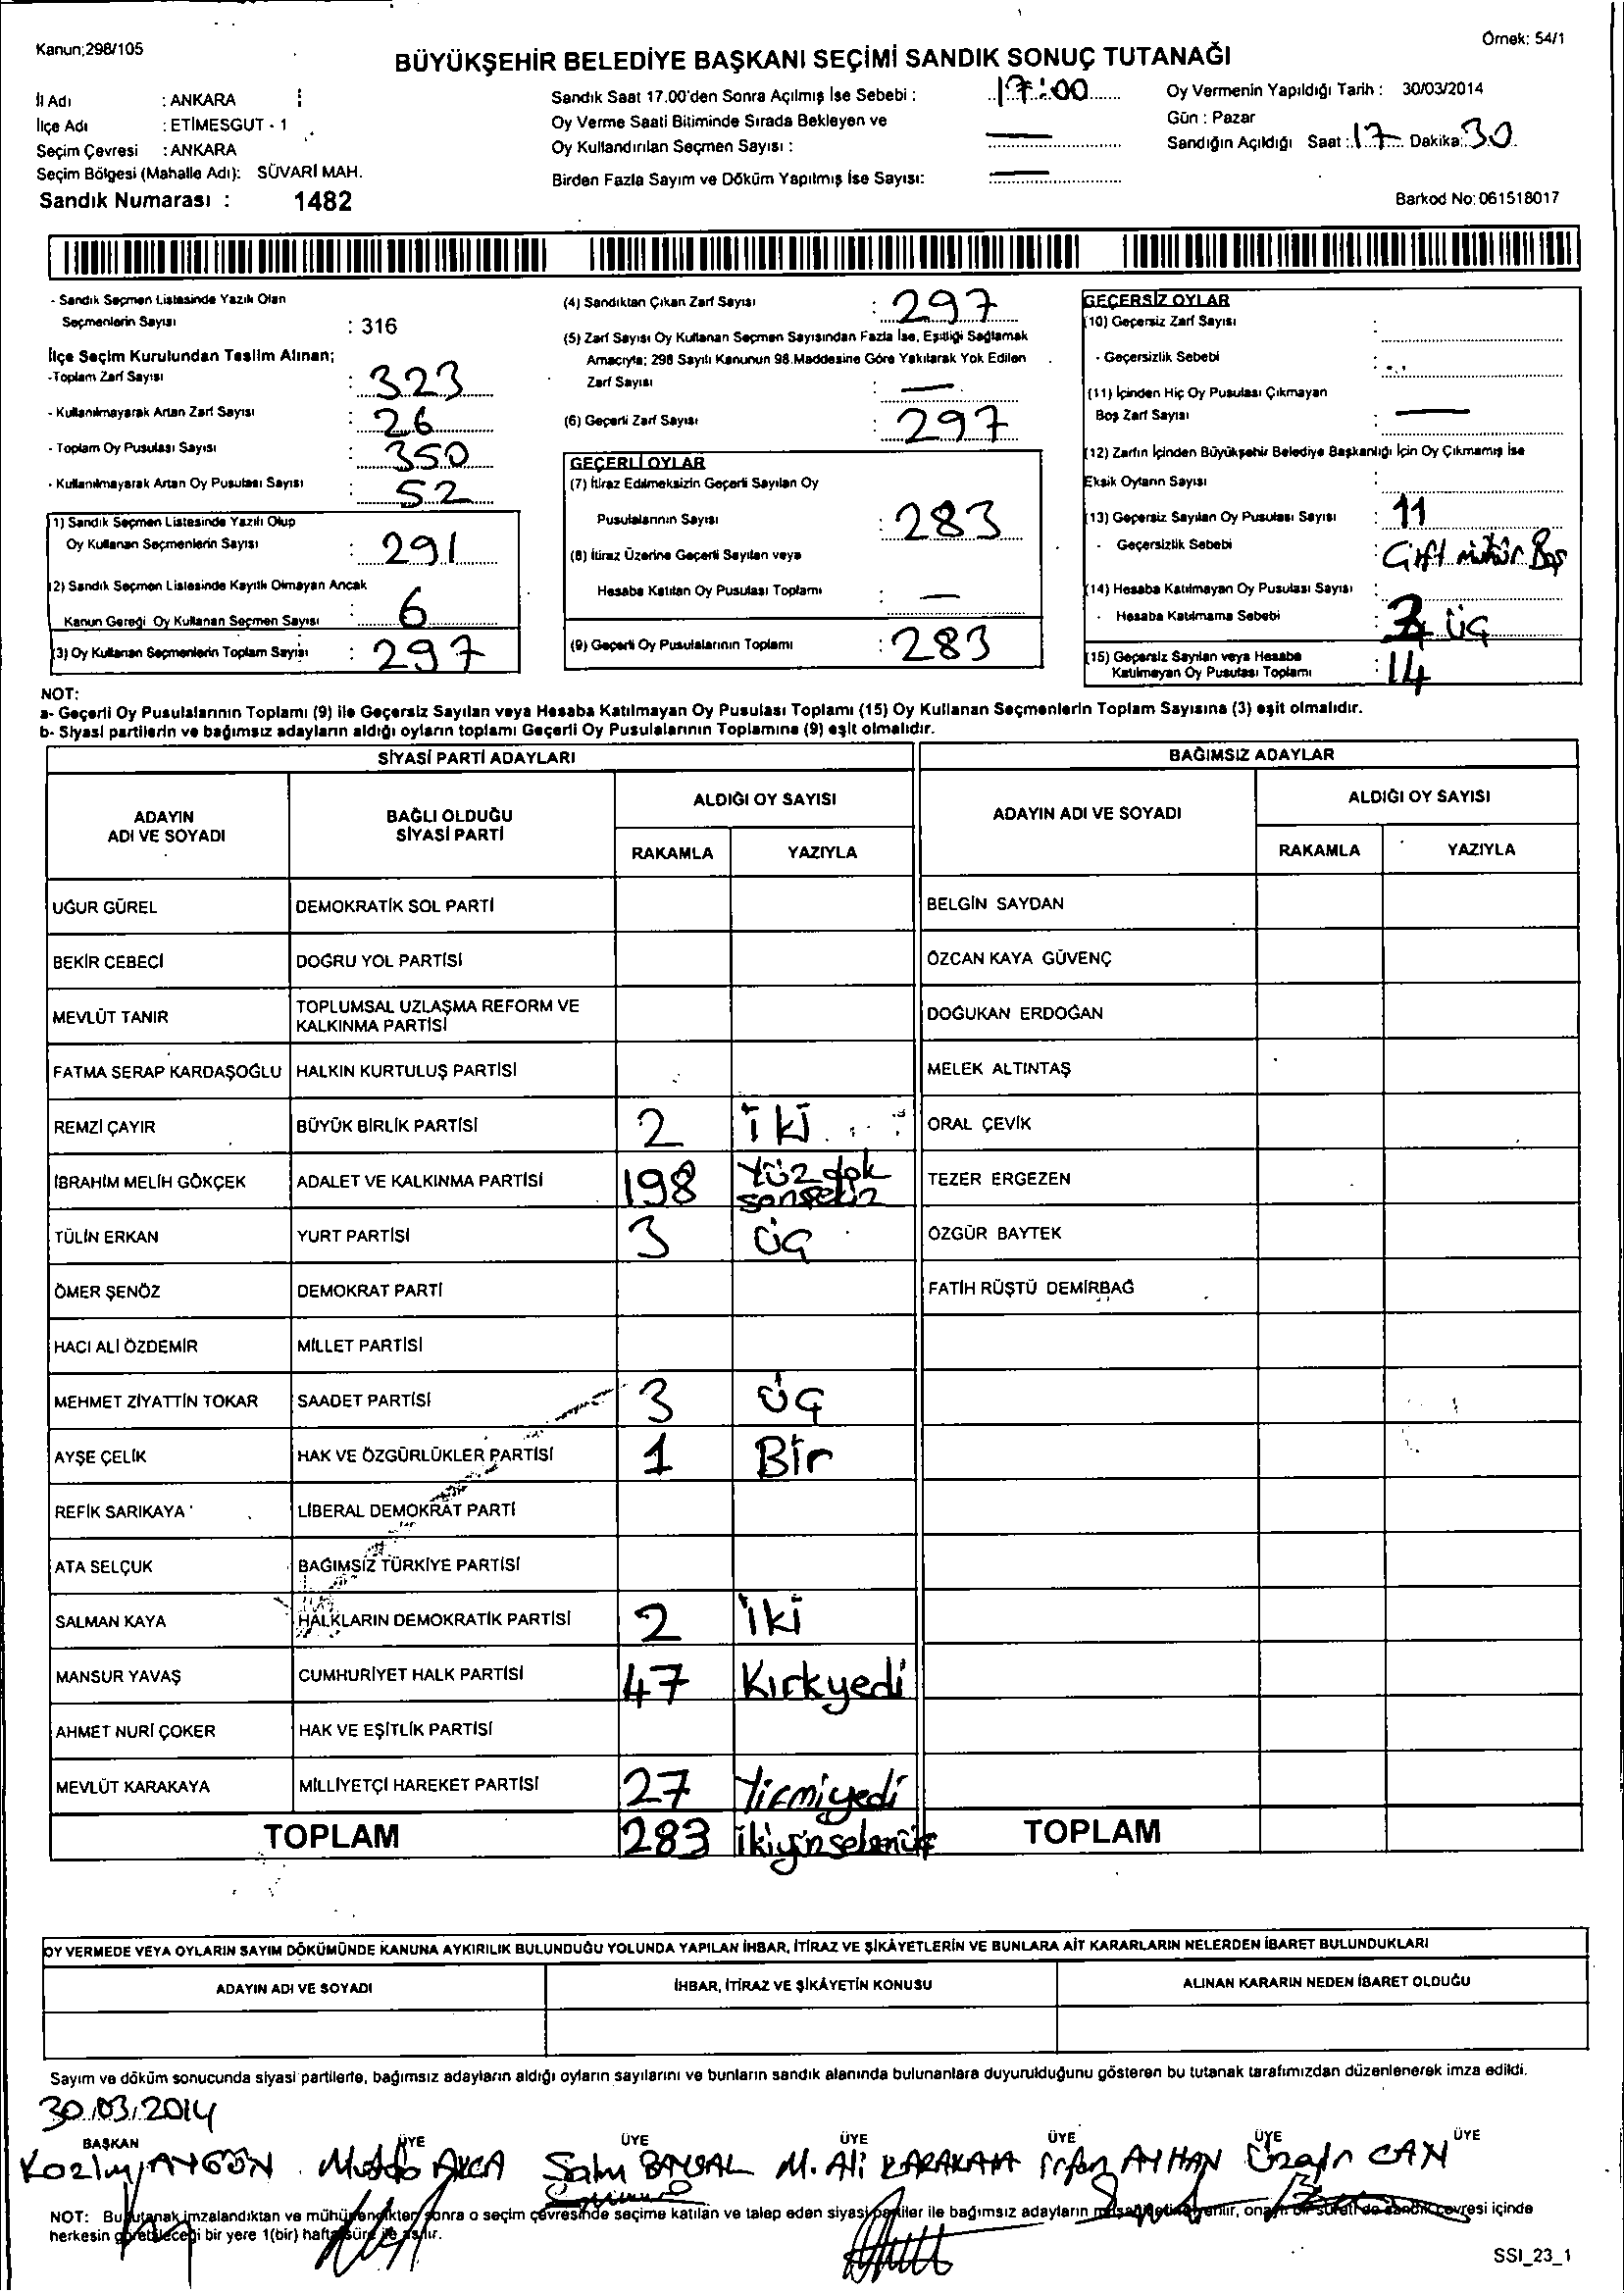 Kanun;298/105
Örnek: 54/1
BÜYÜKŞEHİR BELEDİYE BAŞKANI SEÇİMİ SANDIK SONUÇ TUTANAĞI
İl Adı : ANKARA
İlçe Adı : ETİMESGUT - 1
Seçim Çevresi : ANKARA
Seçim Bölgesi (Mahalle Adı): SÜVARİ MAH.
Sandık Numarası : 1482
Sandık Saat 17.00'den Sonra Açılmış İse Sebebi : 17:00
Oy Verme Saati Bitiminde Sırada Bekleyen ve
Oy Kullandırılan Seçmen Sayısı : —
Birden Fazla Sayım ve Döküm Yapılmış İse Sayısı: —
Oy Vermenin Yapıldığı Tarih : 30/03/2014
Gün : Pazar
Sandığın Açıldığı Saat : 17 Dakika: 30
Barkod No: 061518017
- Sandık Seçmen Listesinde Yazılı Olan
Seçmenlerin Sayısı : 316
İlçe Seçim Kurulundan Teslim Alınan;
-Toplam Zarf Sayısı : 323
- Kullanılmayarak Artan Zarf Sayısı : 26
- Toplam Oy Pusulası Sayısı : 350
- Kullanılmayarak Artan Oy Pusulası Sayısı : 52
1) Sandık Seçmen Listesinde Yazılı Olup
Oy Kullanan Seçmenlerin Sayısı : 291
2) Sandık Seçmen Listesinde Kayıtlı Olmayan Ancak
Kanun Gereği Oy Kullanan Seçmen Sayısı : 6
(3) Oy Kullanan Seçmenlerin Toplam Sayısı : 297
(4) Sandıktan Çıkan Zarf Sayısı : 297
(5) Zarf Sayısı Oy Kullanan Seçmen Sayısından Fazla İse, Eşitliği Sağlamak
Amacıyla; 298 Sayılı Kanunun 98.Maddesine Göre Yakılarak Yok Edilen
Zarf Sayısı : —
(6) Geçerli Zarf Sayısı : 297
GEÇERLİ OYLAR
(7) İtiraz Edilmeksizin Geçerli Sayılan Oy
Pusulalarının Sayısı : 283
(8) İtiraz Üzerine Geçerli Sayılan veya
Hesaba Katılan Oy Pusulası Toplamı : —
(9) Geçerli Oy Pusulalarının Toplamı : 283
GEÇERSİZ OYLAR
(10) Geçersiz Zarf Sayısı :
- Geçersizlik Sebebi :
(11) İçinden Hiç Oy Pusulası Çıkmayan
Boş Zarf Sayısı : —
(12) Zarfın İçinden Büyükşehir Belediye Başkanlığı İçin Oy Çıkmamış İse
Eksik Oyların Sayısı :
(13) Geçersiz Sayılan Oy Pusulası Sayısı : 11
- Geçersizlik Sebebi : Çift mühür Boş
(14) Hesaba Katılmayan Oy Pusulası Sayısı :
- Hesaba Katılmama Sebebi : 3 üç
(15) Geçersiz Sayılan veya Hesaba
Katılmayan Oy Pusulası Toplamı : 14
NOT:
a- Geçerli Oy Pusulalarının Toplamı (9) ile Geçersiz Sayılan veya Hesaba Katılmayan Oy Pusulası Toplamı (15) Oy Kullanan Seçmenlerin Toplam Sayısına (3) eşit olmalıdır.
b- Siyasi partilerin ve bağımsız adayların aldığı oyların toplamı Geçerli Oy Pusulalarının Toplamına (9) eşit olmalıdır.
SİYASİ PARTİ ADAYLARI
BAĞIMSIZ ADAYLAR
ADAYIN ADI VE SOYADI
BAĞLI OLDUĞU SİYASİ PARTİ
ALDIĞI OY SAYISI
RAKAMLA YAZIYLA
ADAYIN ADI VE SOYADI
ALDIĞI OY SAYISI
RAKAMLA YAZIYLA
UĞUR GÜREL DEMOKRATİK SOL PARTİ BELGİN SAYDAN
BEKİR CEBECİ DOĞRU YOL PARTİSİ ÖZCAN KAYA GÜVENÇ
MEVLÜT TANIR TOPLUMSAL UZLAŞMA REFORM VE KALKINMA PARTİSİ DOĞUKAN ERDOĞAN
FATMA SERAP KARDAŞOĞLU HALKIN KURTULUŞ PARTİSİ MELEK ALTINTAŞ
REMZİ ÇAYIR BÜYÜK BİRLİK PARTİSİ 2 iki ORAL ÇEVİK
İBRAHİM MELİH GÖKÇEK ADALET VE KALKINMA PARTİSİ 198 Yüz dok sansekiz TEZER ERGEZEN
TÜLİN ERKAN YURT PARTİSİ 3 üç ÖZGÜR BAYTEK
ÖMER ŞENÖZ DEMOKRAT PARTİ FATİH RÜŞTÜ DEMİRBAĞ
HACI ALİ ÖZDEMİR MİLLET PARTİSİ
MEHMET ZİYATTİN TOKAR SAADET PARTİSİ 3 üç
AYŞE ÇELİK HAK VE ÖZGÜRLÜKLER PARTİSİ 1 Bir
REFİK SARIKAYA LİBERAL DEMOKRAT PARTİ
ATA SELÇUK BAĞIMSIZ TÜRKİYE PARTİSİ
SALMAN KAYA HALKLARIN DEMOKRATİK PARTİSİ 2 iki
MANSUR YAVAŞ CUMHURİYET HALK PARTİSİ 47 Kırkyedi
AHMET NURİ ÇOKER HAK VE EŞİTLİK PARTİSİ
MEVLÜT KARAKAYA MİLLİYETÇİ HAREKET PARTİSİ 27 Yirmiyedi
TOPLAM 283 TOPLAM
OY VERMEDE VEYA OYLARIN SAYIM DÖKÜMÜNDE KANUNA AYKIRILIK BULUNDUĞU YOLUNDA YAPILAN İHBAR, İTİRAZ VE ŞİKÂYETLERİN VE BUNLARA AİT KARARLARIN NELERDEN İBARET BULUNDUKLARI
ADAYIN ADI VE SOYADI İHBAR, İTİRAZ VE ŞİKÂYETİN KONUSU ALINAN KARARIN NEDEN İBARET OLDUĞU
Sayım ve döküm sonucunda siyasi partilerle, bağımsız adayların aldığı oyların sayılarını ve bunların sandık alanında bulunanlara duyurulduğunu gösteren bu tutanak tarafımızdan düzenlenerek imza edildi.
30.03.2014
BAŞKAN ÜYE ÜYE ÜYE ÜYE ÜYE ÜYE
AYGÜN AKCA BAYSAL M. Ali KARAKAYA irfan AYHAN CAN
NOT: Bu tutanak imzalandıktan ve mühürlendikten sonra o seçim çevresinde seçime katılan ve talep eden siyasi partiler ile bağımsız adayların verilir, onaylı bir sureti de sandık çevresi içinde
herkesin görebileceği bir yere 1(bir) hafta süre ile asılır.
SSI_23_1